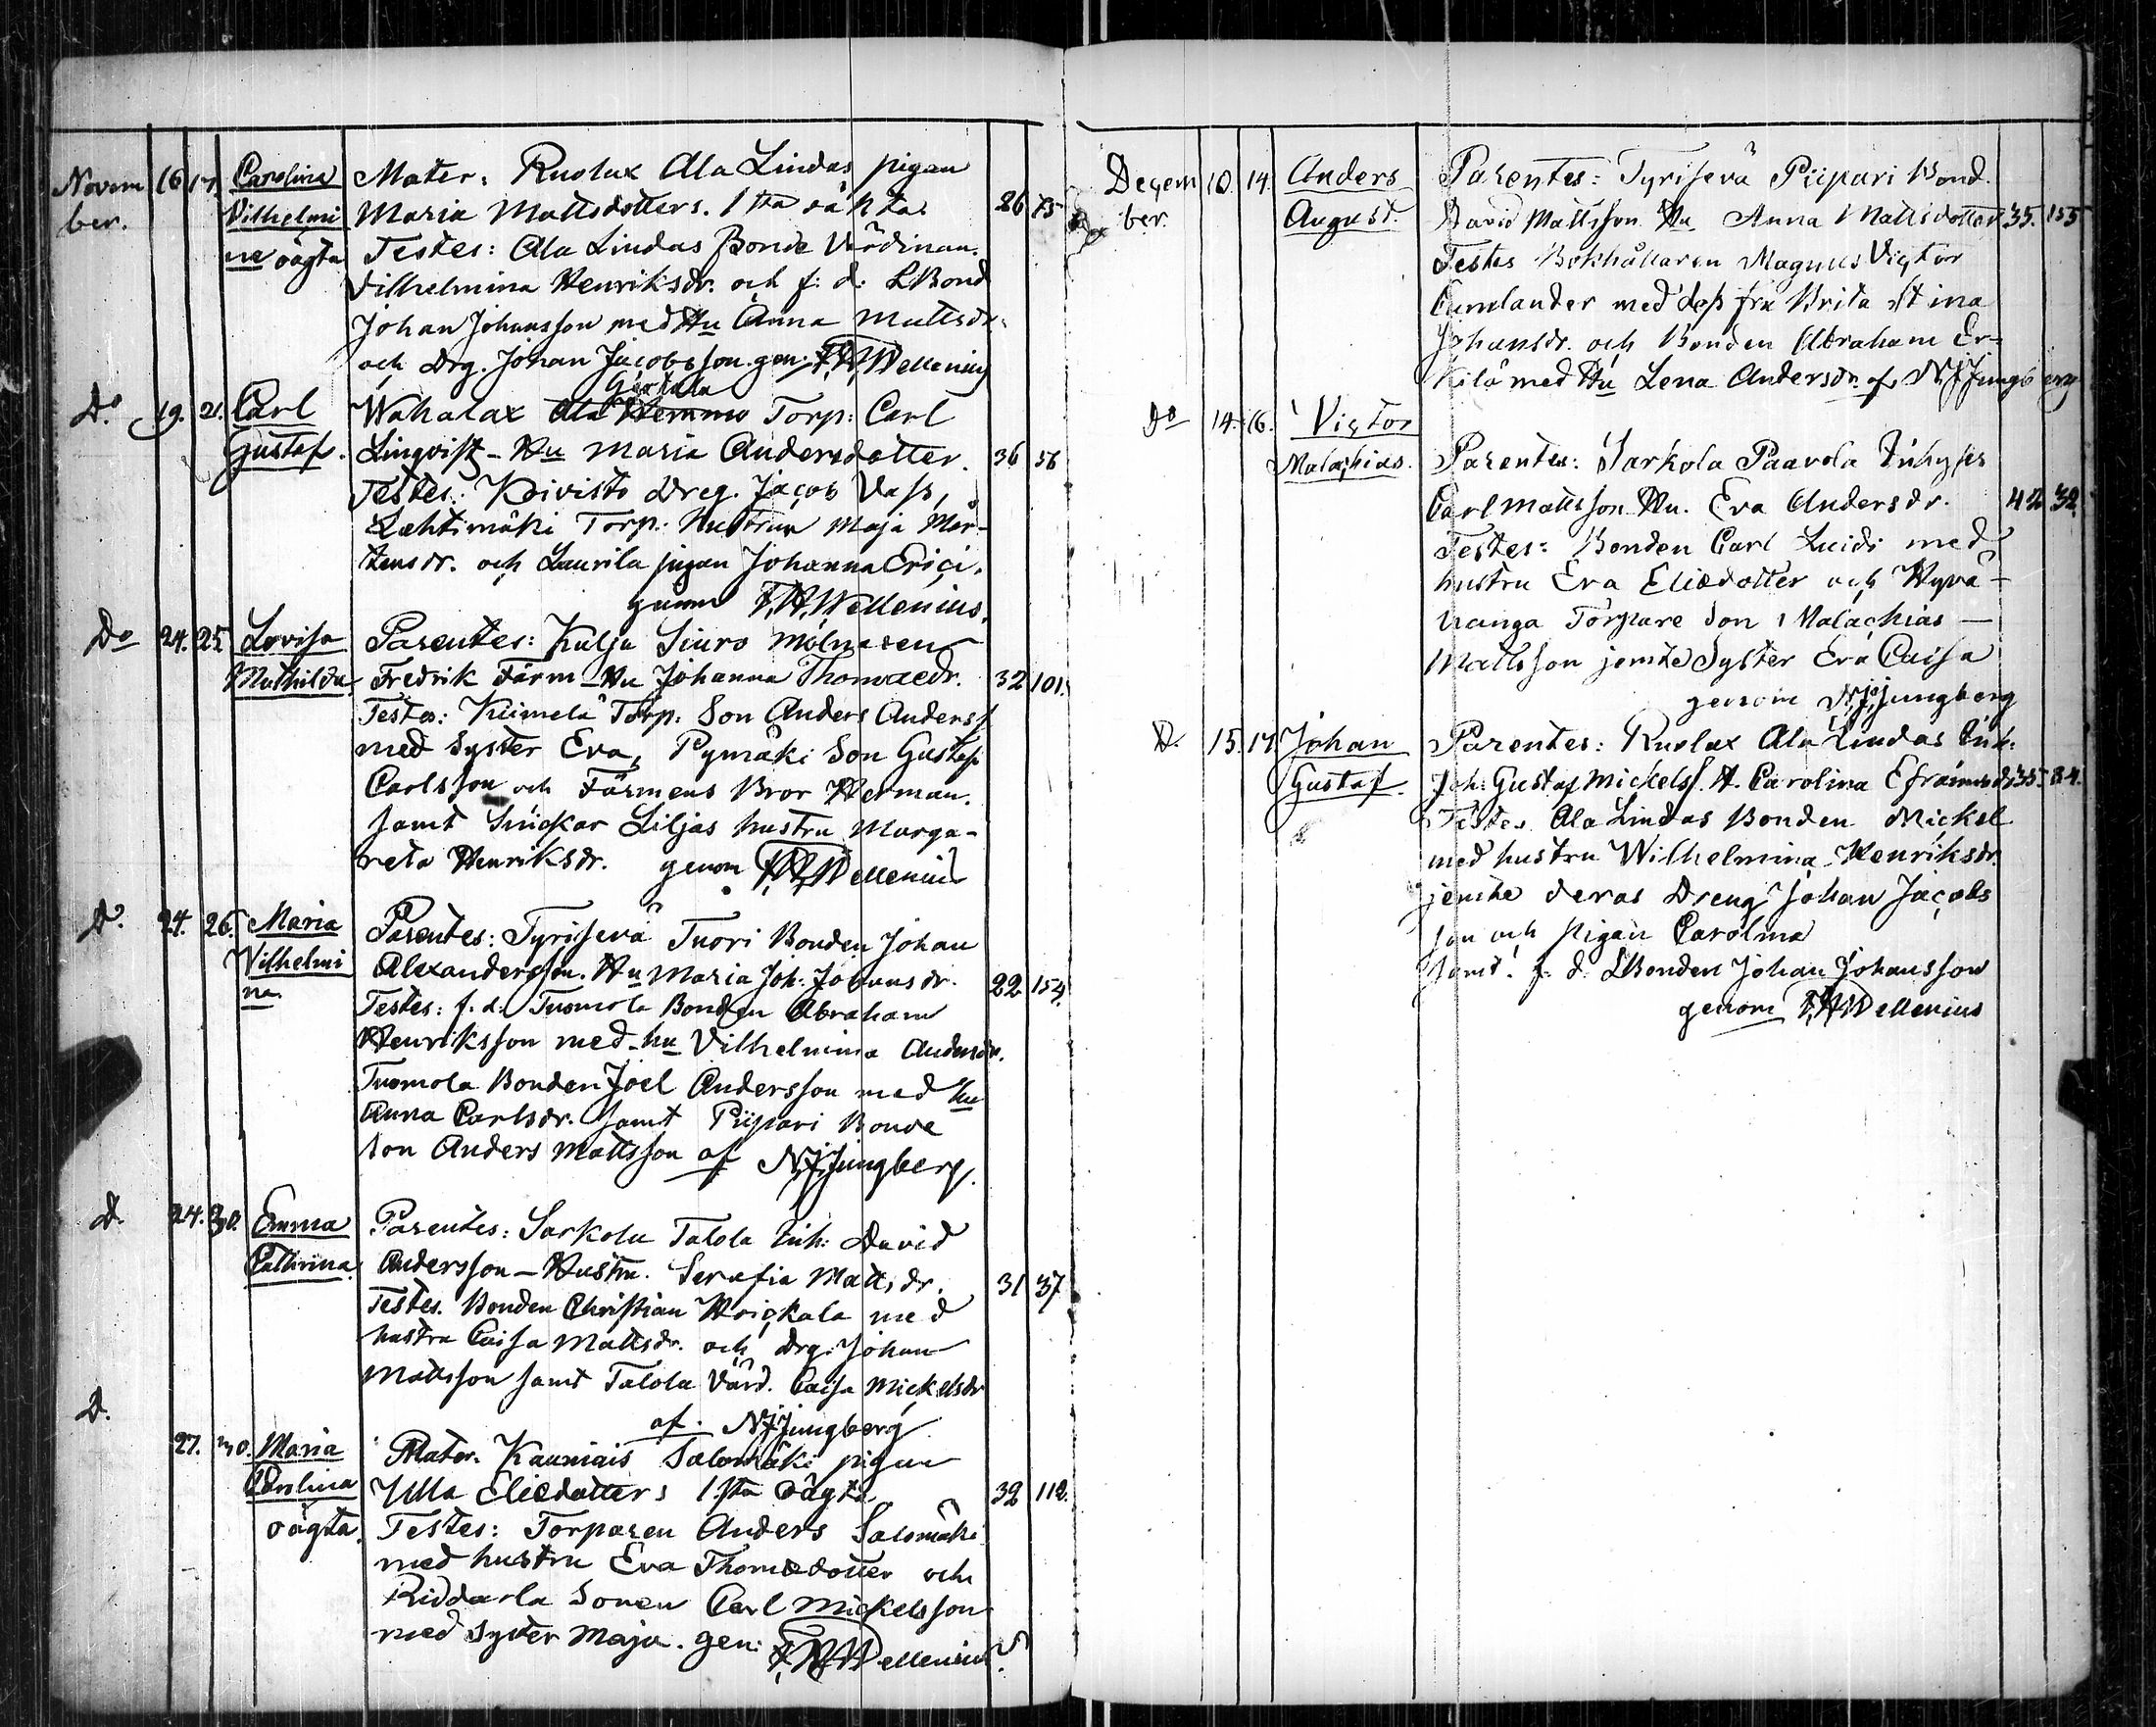 Novem 16 17. Carolina Mater: Ruolax Ala Lindas pigan
ber. Vilhelmi Maria Mattsdotters. 1sta oäkta 26 75
ne oägta Testes: Ala Lindas Bonde Värdinan.
Vilhelmina Henriksdr. och f: d: LBond
Johan Johansson med Hu Anna Mattsdr.
och Drg. Johan Jacobsson. gen: Wellenius
Do 19. 21. Carl Wahalax Ala Hemmo Torp: Carl
Gustaf. Linqvist - Hu Maria Andersdotter. 36 56
Testes: Koivisto dreg. Jacob Dass,
Lähtimäki Torp: Hustrun Maja Mår-
tensdr. och Laurila pigan Johanna Erici.
genom Wellenius.
Do 24. 25 Lovisa Parentes: Kulju Siuro Mölnaren
Mathilda Fredrik Färm - Hu Johanna Thomædr. 32 101.
Testes: Kuimela Torp: Son Anders Anderss
med Syster Eva, Pymäki Son Gustaf
Carlsson och Färmens Bror Herman.
samt Snickar Liljas hustru Marga-
reta Henriksdr. genom Wellenius
Do 24. 26. Maria Parentes: Tyrisevä Tuori Bonden Johan
Vilhelmi Alexandersson. Hu Maria Joh: Johansdr. 22 154.
na. Testes: f. d. Tuomola Bonden Abraham
Henriksson med hu Vilhelmina Andersdr.
Tuomola Bonden Joel Andersson med hu
Anna Carlsdr. samt Piipari Bonde
son Anders Mattsson af NJJungberg.
D. 24. 30. Emma Parentes: Sarkola Talola Inh: David
Cathrina. Andersson - Hustru. Serafia Mattsdr. 31 37
Testes. Bonden Christian Hoickala med
hustru Caisa Mattsdr. och drg. Johan
Mattsson samt Talola Värd. Caisa Mickelsdr
D. af. NJJungberg
27. 30. Maria Mater. Kauniais Salomäki pigan
Carolina Ulla Eliædotters 1sta oägta 32 112.
oägta. Testes: Torparen Anders Salomäki
med hustru Eva Thomædotter och
Riddarla Sonen Carl Mickelsson
med syster Maja. gen: Wellenius.
Decem 10. 14. Anders Parentes: Tyrisevä Piipari Bond.
ber. August. David Mattsson Hu Anna Mattsdotter 35. 155
Testes Bokhållaren Magnus Victor
Cumlander med dess fru Brita Stina
Johansdr. och Bonden Abraham Er-
kilä med Hu Lena Andersdr. af NJJungberg
Do 14. 16. Victor
Malachias. Parentes: Sarkola Paavola Inhyses
Carl Mattsson Hu. Eva Andersdr. 42 32.
Testes: Bonden Carl Luidi med
hustru Eva Eliædotter och Hyvä-
nanga Torpare Son Malachias -
Mattsson jemte Syster Eva Caisa
genom NJJungberg
D. 15. 17. Johan Parentes: Ruolax Ala Lindas Inh:
Gustaf. Joh: Gustaf Mickelss. H. Carolina Eframsdr 35. 84.
Testes Ala Lindas Bonden Mickel
med hustru Wilhelmina Henriksdr.
jemte deras Dreng Johan Jacobs
son och pigan Carolina
samt f. d. LBonden Johan Johansson
genom Wellenius